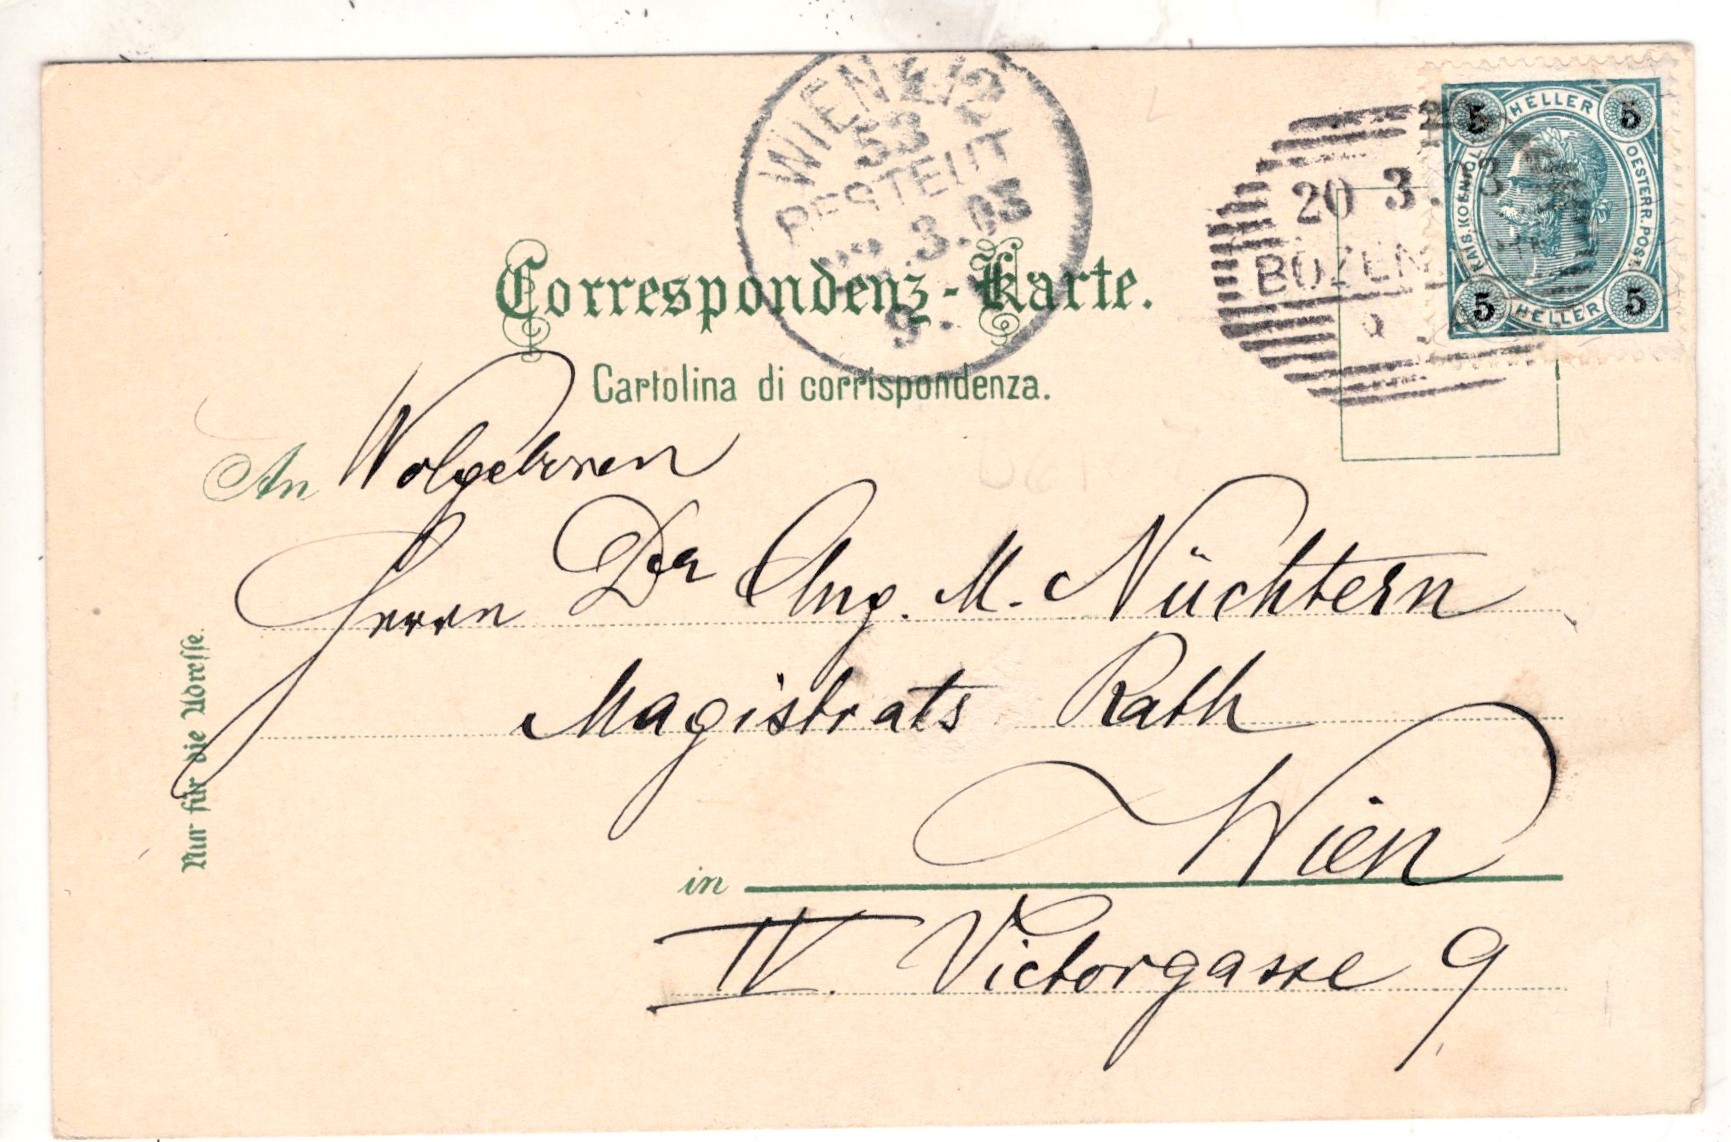 WIEN 4/2
53
BESTELLT
3.03
9.
5 HELLER 5
KAIS. KOENIGL. OESTERR. POST.
5 HELLER 5
20 3. 03
BOZEN
Correspondenz-Karte.
Cartolina di corrispondenza.
An Wolgeboren
Herrn Dr Aug. M. Nüchtern
Magistrats Rath
in Wien
IV. Victorgasse 9
Nur für die Adresse.